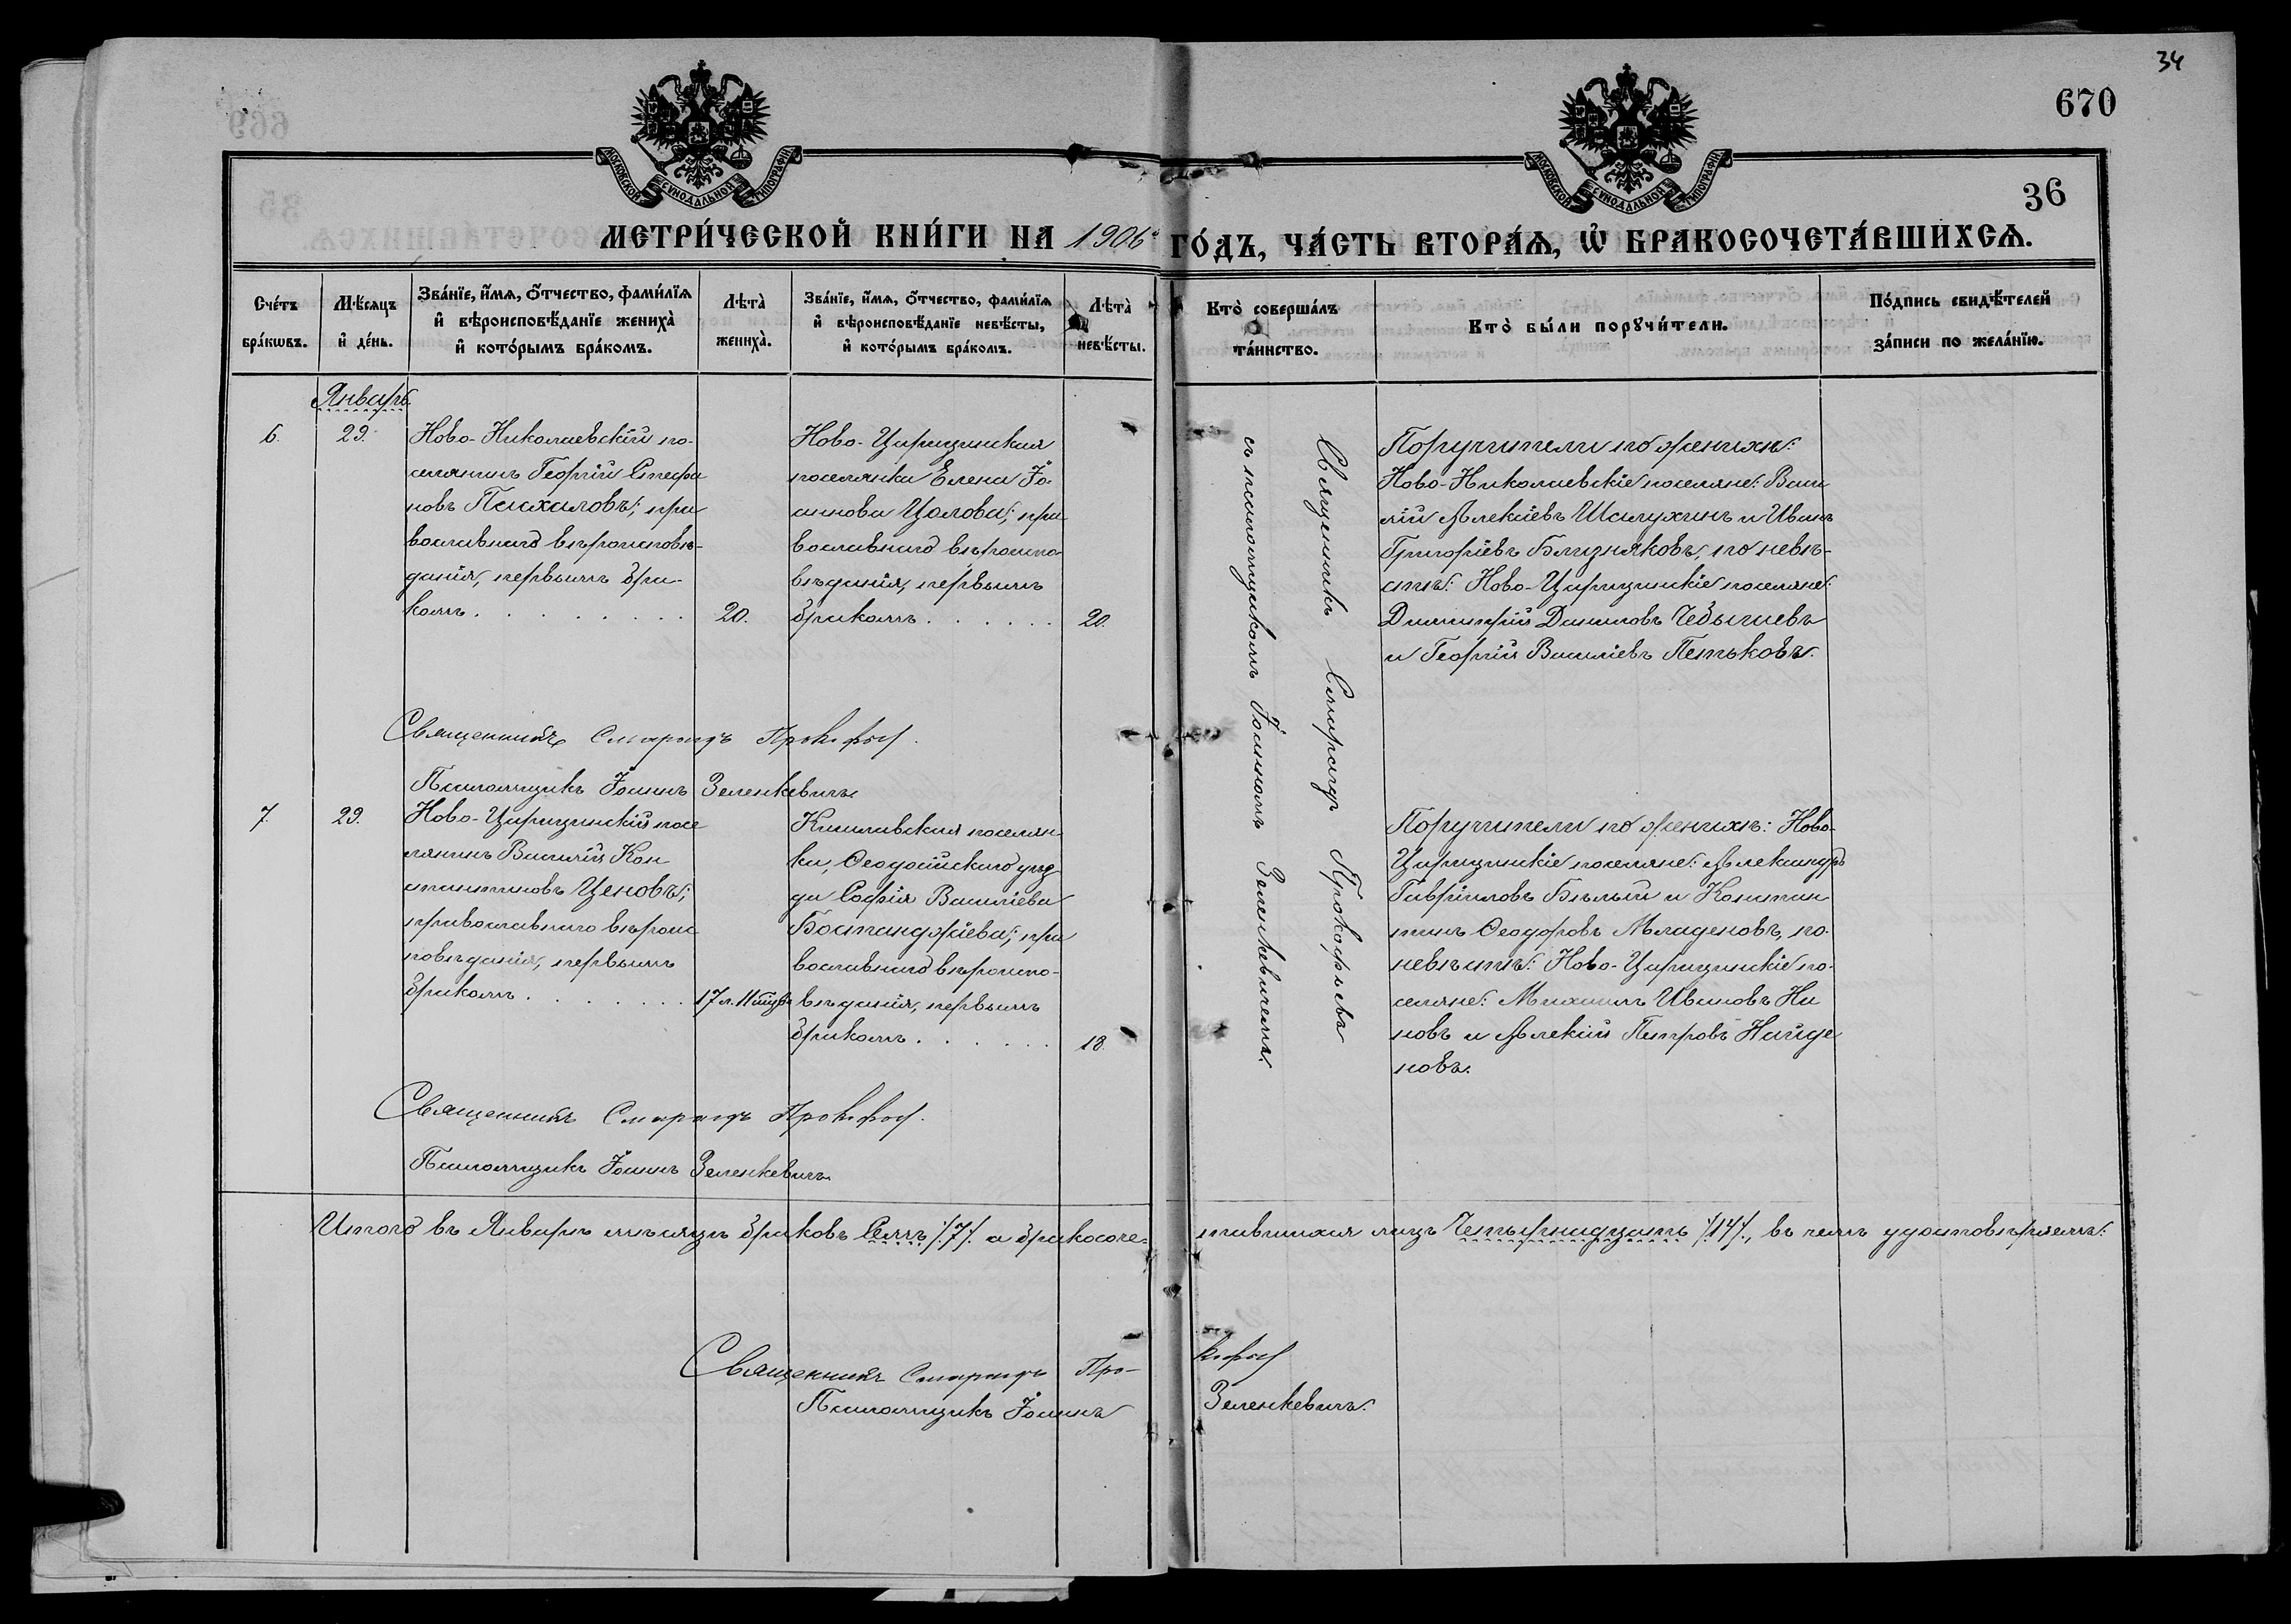 34
670
36
МОСКОВСКОЙ СѴНОДАЛЬНОЙ ТИПОГРАФІИ
МОСКОВСКОЙ СѴНОДАЛЬНОЙ ТИПОГРАФІИ
МЕТРИ́ЧЕСКОЙ КНИ́ГИ НА 1906й ГО́ДЪ, ЧА́СТЬ ВТОРА́Я, Ѡ҆ БРАКОСОЧЕТА́ВШИХСЯ.
Сче́тъ бра́кѡвъ.
Мѣ́сяцъ и҆ де́нь.
Зва́нїе, и҆́мя, о҆́тчество, фами́лїя и҆ вѣроисповѣ́данїе жениха̀ и҆ кото́рымъ бра́комъ.
Лѣта̀ жениха̀.
Зва́нїе, и҆́мя, о҆́тчество, фами́лїя и҆ вѣроисповѣ́данїе невѣ́сты, и҆ кото́рымъ бра́комъ.
Лѣта̀ невѣ́сты.
Кто̀ соверша́лъ та́инство.
Кто̀ бы́ли порꙋчи́тели.
По́дпись свидѣ́телей за́писи по жела́нїю.
Январь
6.
29.
Ново-Николаевскій по-
селянинъ Георгій Стефа
новъ Пахаловъ; пра
вославнаго вѣроисповѣ-
данія, первымъ бра-
комъ. . . . . . . .
20.
Ново-Царицинская
поселянка Елена Іо
аннова Цолова; пра
вославнаго вѣроиспо-
вѣданія, первымъ
бракомъ. . . . . .
20.
Священникъ Смарагдъ Прокофьевъ
съ псаломщикомъ Іоанномъ Зеленкевичемъ.
Поручители по женихѣ:
Ново-Николаевскіе поселяне: Васи
лій Алексіевъ Шалухинъ и Иванъ
Григоріевъ Близняковъ, по невѣ-
стѣ: Ново-Царицинскіе поселяне:
Димитрій Даниловъ Чебычиевъ
и Георгій Василіевъ Петьковъ.
Священникъ Смарагдъ Прокофьевъ.
Псаломщикъ Іоаннъ Зеленкевичъ.
7.
29.
Ново-Царицинскій посе
лянинъ Василій Кон
стантиновъ Ценовъ;
православнаго вѣроис
повѣданія, первымъ
бракомъ. . . . . . . .
17 л. 11 мѣсяц.
Кишлавская поселян
ка, Ѳеодосійскаго уѣз
да Софія Василіева
Бостанджіева; пра
вославнаго вѣроиспо-
вѣданія, первымъ
бракомъ. . . . . .
18.
Поручители по женихѣ: Ново-
Царицинскіе поселяне: Александръ
Гавріиловъ Бѣлый и Констан
тинъ Ѳеодоровъ Младеновъ, по
невѣстѣ: Ново-Царицинскіе по-
селяне: Михаилъ Ивановъ Ни
новъ и Алексій Петровъ Найде
новъ.
Священникъ Смарагдъ Прокофьевъ.
Псаломщикъ Іоаннъ Зеленкевичъ.
Итого въ Январѣ мѣсяцѣ браковъ Семь /.7/. а бракосоче- тавшихся лицъ Четырнадцать /.14/., въ чемъ удостовѣряемъ:
Священникъ Смарагдъ Про- кофьевъ
Псаломщикъ Іоаннъ Зеленкевичъ.